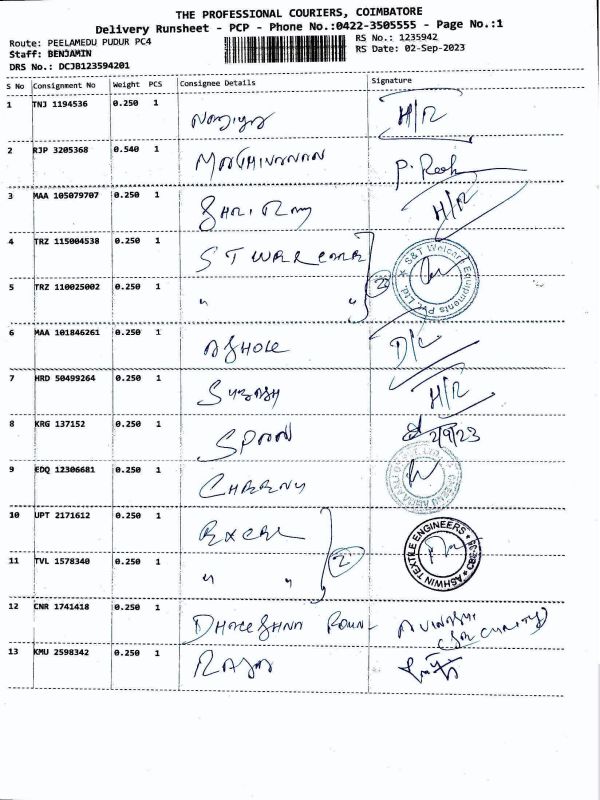 THE PROFESSIONAL COURIERS, COIMBATORE
Delivery Runsheet - PCP - Phone No.:0422-3505555 - Page No.:1
Route: PEELAMEDU PUDUR PC4
RS No.: 1235942
Staff: BENJAMIN
RS Date: 02-Sep-2023
DRS No.: DCJB123594201
S No Consignment No Weight PCS Consignee Details Signature
1 TNJ 1194536 0.250 1 H/R
2 RJP 3205368 0.540 1
3 MAA 105079707 0.250 1 H/R
4 TRZ 115004538 0.250 1 S T WELCARE
S&T Welcare Equipments Pvt. Ltd.
5 TRZ 110025002 0.250 1 " " 2
6 MAA 101846261 0.250 1 ASHOK D/L
7 HRD 50499264 0.250 1 SUBASH H/R
8 KRG 137152 0.250 1 2/9/23
9 EDQ 12306681 0.250 1
10 UPT 2171612 0.250 1 EXCEL
ASHWIN TEXTILE ENGINEERS
11 TVL 1578340 0.250 1 " " 2
12 CNR 1741418 0.250 1
13 KMU 2598342 0.250 1 RAJA